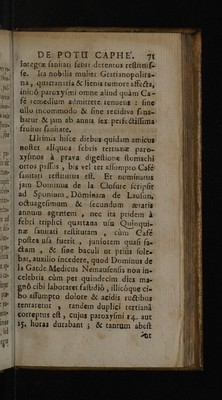 DE POTU CAPHE'. 71
integræ sanitati fuisse detentos restituis-
se. Ita nobilis mulier Gratianopolita-
na, quartanaria & lienis tumore affecta,
initiô paroxysmi omne aliud quàm Ca-
fé remedium admittere renuens: sine
ullo incommodo & sine recidiva sana-
batur & jam ab annis sex perfectissima
fruitur sanitate.
Ultima hisce diebus quidam amicus
noster aliquot febris tertianæ paro-
xysmos à prava digestione stomachi
ortos passus, bis vel ter assumpto Café
sanitati restitutus est. Et nominatus
jam Dominus de la Closure scripsit
ad Sponium, Dominam de Lausun,
octuagesimum & secundum ætatis
annum agentem, nec ita pridem à
febri triplici quartana usu Quinqui-
næ sanitati restitutam, cùm Café
postea usa fuerit, juniorem quasi fa-
ctam, & sine baculi ut priùs sole-
bat, auxilio incedere, quod Dominus de
la Garde Medicus Nemausensis non in-
celebris cùm per quindecim dies ma-
gnô cibi laboraret fastidiô, illicôque ci-
bo assumpto dolore & acidis ructibus
tentaretur, tandem duplici tertianâ
correptus est, cujus paroxysmi 14. aut
15. horas durabant; & tantum abest